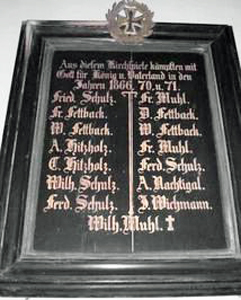 Aus diesem Kirchspiele kämpften mit
Gott für König u. Vaterland in den
Jahren 1866, 70, u. 71.
Fried. Schulz. Fr. Muhl.
Fr. Fettback. D. Fettback.
W. Fettback. W. Fettback.
A. Hitzholz. Fr. Muhl.
C. Hitzholz. Ferd. Schulz.
Wilh. Schulz. A. Nachtigal.
Ferd. Schulz. J. Wichmann.
Wilh. Muhl. †